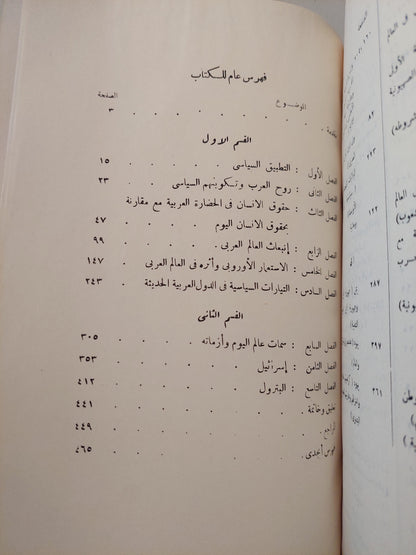 فهرس عام للكتاب
الموضوع الصفحة
مقدمة . . . . . . . . ٣
القسم الأول
الفصل الأول : التطبيق السياسى . . . . ١٥
الفصل الثانى : روح العرب وتكوينهم السياسى . . ٢٣
الفصل الثالث : حقوق الانسان فى الحضارة العربية مع مقارنة
بحقوق الانسان اليوم . . . . ٤٧
الفصل الرابع : إنبعاث العالم العربى . . . . . ٩٩
الفصل الخامس : الاستعمار الأوروبى وأثره فى العالم العربى . ١٤٧
الفصل السادس : التيارات السياسية فى الدول العربية الحديثة . ٢٤٣
القسم الثانى
الفصل السابع : سمات عالم اليوم وأزماته . . . ٣٠٥
الفصل الثامن : إسرائيل . . . . . ٣٥٣
الفصل التاسع : البترول . . . . . ٤١٢
تعليق وخاتمة . . . . . . . ٤٤١
المراجع . . . . . . . ٤٤٩
فهرس أبجدى . . . . . . . ٤٦٥
الصفحة
٨٢
٢٨٧
٢٩٧